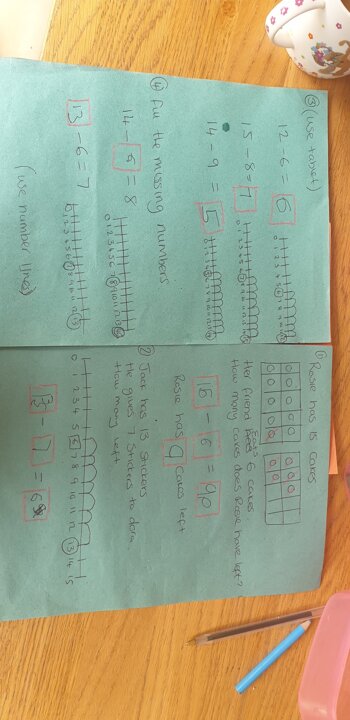 ① Rosie has 15 cakes
Her friend eats 6 cakes
How many cakes does Rosie have left?
15 - 6 = 9
Rosie has 9 cakes left
② Jack has 13 stickers
He gives 7 stickers to dora.
How many left
0 1 2 3 4 5 6 7 8 9 10 11 12 13 14 15
13 - 7 = 6
③ (use tabet)
12 - 6 = 6
15 - 8 = 7
14 - 9 = 5
④ fill the missing numbers
14 - 6 = 8
13 - 6 = 7
(use number lines)